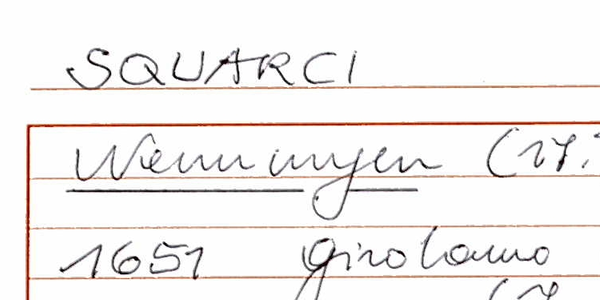 SQUARCI
Wemmingen (17.
1651 Girolamo
(17